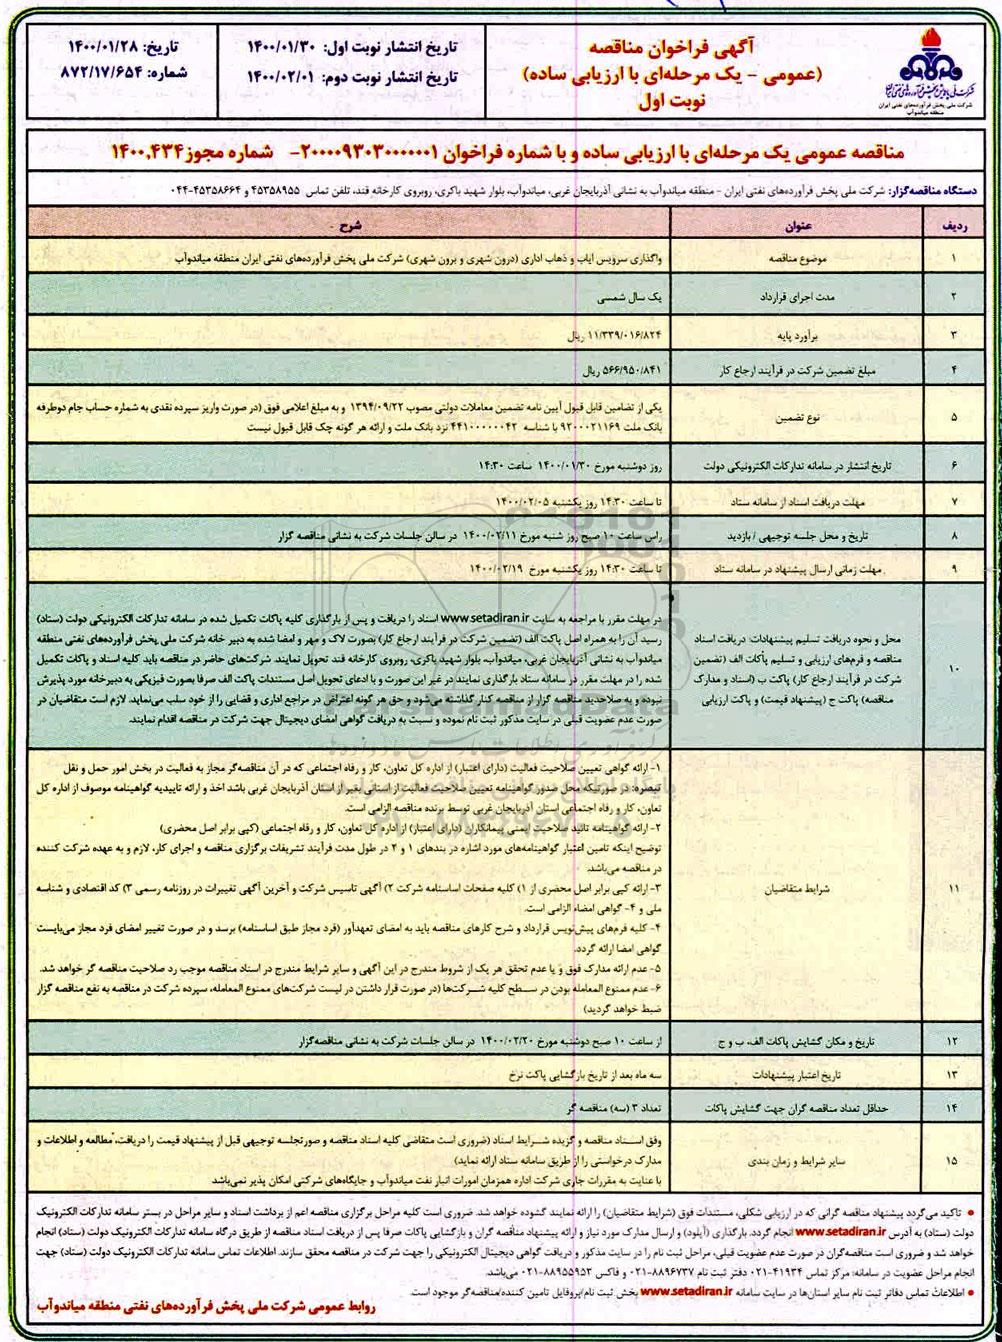 آگهی فراخوان مناقصه
(عمومی - یک مرحله‌ای با ارزیابی ساده)
نوبت اول
تاریخ انتشار نوبت اول: ۱۴۰۰/۰۱/۳۰
تاریخ انتشار نوبت دوم: ۱۴۰۰/۰۲/۰۱
تاریخ: ۱۴۰۰/۰۱/۲۸
شماره: ۸۷۲/۱۷/۶۵۴
شرکت ملی پخش فرآورده‌های نفتی ایران
منطقه میاندوآب
مناقصه عمومی یک مرحله‌ای با ارزیابی ساده و با شماره فراخوان ۲۰۰۰۰۹۳۰۳۰۰۰۰۰۰۱- شماره مجوز ۱۴۰۰,۴۳۴
دستگاه مناقصه‌گزار: شرکت ملی پخش فرآورده‌های نفتی ایران - منطقه میاندوآب به نشانی آذربایجان غربی، میاندوآب، بلوار شهید باکری، روبروی کارخانه قند، تلفن تماس ۴۵۳۵۸۹۵۵ و ۴۵۳۵۸۶۶۴-۰۴۴
ردیف عنوان شرح
۱ موضوع مناقصه واگذاری سرویس ایاب و ذهاب اداری (درون شهری و برون شهری) شرکت ملی پخش فرآورده‌های نفتی ایران منطقه میاندوآب
۲ مدت اجرای قرارداد یک سال شمسی
۳ برآورد پایه ۱۱/۳۳۹/۰۱۶/۸۲۴ ریال
۴ مبلغ تضمین شرکت در فرآیند ارجاع کار ۵۶۶/۹۵۰/۸۴۱ ریال
۵ نوع تضمین یکی از تضامین قابل قبول آیین نامه تضمین معاملات دولتی مصوب ۱۳۹۴/۰۹/۲۲ و به مبلغ اعلامی فوق (در صورت واریز سپرده نقدی به شماره حساب جام دوطرفه
بانک ملت ۹۲۰۰۰۲۱۱۶۹ با شناسه ۴۴۱۰۰۰۰۰۰۴۲ نزد بانک ملت و ارائه هر گونه چک قابل قبول نیست
۶ تاریخ انتشار در سامانه تدارکات الکترونیکی دولت روز دوشنبه مورخ ۱۴۰۰/۰۱/۳۰ ساعت ۱۴:۳۰
۷ مهلت دریافت اسناد از سامانه ستاد تا ساعت ۱۴:۳۰ روز یکشنبه ۱۴۰۰/۰۲/۰۵
۸ تاریخ و محل جلسه توجیهی / بازدید راس ساعت ۱۰ صبح روز شنبه مورخ ۱۴۰۰/۰۲/۱۱ در سالن جلسات شرکت به نشانی مناقصه گزار
۹ مهلت زمانی ارسال پیشنهاد در سامانه ستاد تا ساعت ۱۴:۳۰ روز یکشنبه مورخ ۱۴۰۰/۰۲/۱۹
۱۰ محل و نحوه دریافت تسلیم پیشنهادات: دریافت اسناد
مناقصه و فرم‌های ارزیابی و تسلیم پاکات الف (تضمین
شرکت در فرآیند ارجاع کار) پاکت ب (اسناد و مدارک
مناقصه) پاکت ج (پیشنهاد قیمت) و پاکت ارزیابی
در مهلت مقرر با مراجعه به سایت www.setadiran.ir اسناد را دریافت و پس از بارگذاری کلیه پاکات تکمیل شده در سامانه تدارکات الکترونیکی دولت (ستاد)
رسید آن را به همراه اصل پاکت الف (تضمین شرکت در فرآیند ارجاع کار) بصورت لاک و مهر و امضا شده به دبیر خانه شرکت ملی پخش فرآورده‌های نفتی منطقه
میاندوآب به نشانی آذربایجان غربی، میاندوآب، بلوار شهید باکری، روبروی کارخانه قند تحویل نمایند. شرکت‌های حاضر در مناقصه باید کلیه اسناد و پاکات تکمیل
شده را در مهلت مقرر در سامانه ستاد بارگذاری نمایند در غیر این صورت و با ادعای تحویل اصل مستندات پاکت الف صرفا بصورت فیزیکی به دبیرخانه مورد پذیرش
نبوده و به صلاحدید مناقصه گزار از مناقصه کنار گذاشته می‌شود و حق هر گونه اعتراض در مراجع اداری و قضایی را از خود سلب می‌نماید. لازم است متقاضیان در
صورت عدم عضویت قبلی در سایت مذکور ثبت نام نموده و نسبت به دریافت گواهی امضای دیجیتال جهت شرکت در مناقصه اقدام نمایند.
۱۱ شرایط متقاضیان
۱- ارائه گواهی تعیین صلاحیت فعالیت (دارای اعتبار) از اداره کل تعاون، کار و رفاه اجتماعی که در آن مناقصه‌گر مجاز به فعالیت در بخش امور حمل و نقل
تبصره: در صورتیکه محل صدور گواهینامه تعیین صلاحیت فعالیت از استانی بغیر از استان آذربایجان غربی باشد اخذ و ارائه تاییدیه گواهینامه موصوف از اداره کل
تعاون، کار و رفاه اجتماعی استان آذربایجان غربی توسط برنده مناقصه الزامی است.
۲- ارائه گواهینامه تائید صلاحیت ایمنی پیمانکاران (دارای اعتبار) از اداره کل تعاون، کار و رفاه اجتماعی (کپی برابر اصل محضری)
توضیح اینکه تامین اعتبار گواهینامه‌های مورد اشاره در بندهای ۱ و ۲ در طول مدت فرآیند تشریفات برگزاری مناقصه و اجرای کار، لازم و به عهده شرکت کننده
در مناقصه می‌باشد.
۳- ارائه کپی برابر اصل محضری از ۱) کلیه صفحات اساسنامه شرکت ۲) آگهی تاسیس شرکت و آخرین آگهی تغییرات در روزنامه رسمی ۳) کد اقتصادی و شناسه
ملی و ۴- گواهی امضاء الزامی است.
۴- کلیه فرم‌های پیش‌نویس قرارداد و شرح کارهای مناقصه باید به امضای تعهدآور (فرد مجاز طبق اساسنامه) برسد و در صورت تغییر امضای فرد مجاز می‌بایست
گواهی امضا ارائه گردد.
۵- عدم ارائه مدارک فوق و یا عدم تحقق هر یک از شروط مندرج در این آگهی و سایر شرایط مندرج در اسناد مناقصه موجب رد صلاحیت مناقصه گر خواهد شد.
۶- عدم ممنوع المعامله بودن در سطح کلیه شرکت‌ها (در صورت قرار داشتن در لیست شرکت‌های ممنوع المعامله، سپرده شرکت در مناقصه به نفع مناقصه گزار
ضبط خواهد گردید)
۱۲ تاریخ و مکان گشایش پاکات الف، ب و ج از ساعت ۱۰ صبح دوشنبه مورخ ۱۴۰۰/۰۲/۲۰ در سالن جلسات شرکت به نشانی مناقصه‌گزار
۱۳ تاریخ اعتبار پیشنهادات سه ماه بعد از تاریخ بازگشایی پاکت نرخ
۱۴ حداقل تعداد مناقصه گران جهت گشایش پاکات تعداد ۳ (سه) مناقصه گر
۱۵ سایر شرایط و زمان بندی
وفق اسناد مناقصه و گزیده شرایط اسناد (ضروری است متقاضی کلیه اسناد مناقصه و صورتجلسه توجیهی قبل از پیشنهاد قیمت را دریافت، مطالعه و اطلاعات و
مدارک درخواستی را از طریق سامانه ستاد ارائه نماید)
با عنایت به مقررات جاری شرکت اداره همزمان امورات انبار نفت میاندوآب و جایگاه‌های شرکتی امکان پذیر نمی‌باشد
• تاکید می‌گردد پیشنهاد مناقصه گرانی که در ارزیابی شکلی، مستندات فوق (شرایط متقاضیان) را ارائه نمایند گشوده خواهد شد. ضروری است کلیه مراحل برگزاری مناقصه اعم از برداشت اسناد و سایر مراحل در بستر سامانه تدارکات الکترونیک
دولت (ستاد) به آدرس www.setadiran.ir انجام گردد. بارگذاری (آپلود) و ارسال مدارک مورد نیاز و ارائه پیشنهاد مناقصه گران و بازگشایی پاکات صرفا پس از دریافت اسناد مناقصه از طریق درگاه سامانه تدارکات الکترونیک دولت (ستاد) انجام
خواهد شد و ضروری است مناقصه‌گران در صورت عدم عضویت قبلی، مراحل ثبت نام را در سایت مذکور و دریافت گواهی دیجیتال الکترونیکی را جهت شرکت در مناقصه محقق سازند. اطلاعات تماس سامانه تدارکات الکترونیک دولت (ستاد) جهت
انجام مراحل عضویت در سامانه: مرکز تماس ۴۱۹۳۴-۰۲۱ دفتر ثبت نام ۸۸۹۶۷۳۷-۰۲۱ و فاکس ۸۸۹۵۵۹۵۳-۰۲۱ می‌باشد.
• اطلاعات تماس دفاتر ثبت نام سایر استان‌ها در سایت سامانه www.setadiran.ir بخش ثبت نام/پروفایل تامین کننده/مناقصه‌گر موجود است.
روابط عمومی شرکت ملی پخش فرآورده‌های نفتی منطقه میاندوآب